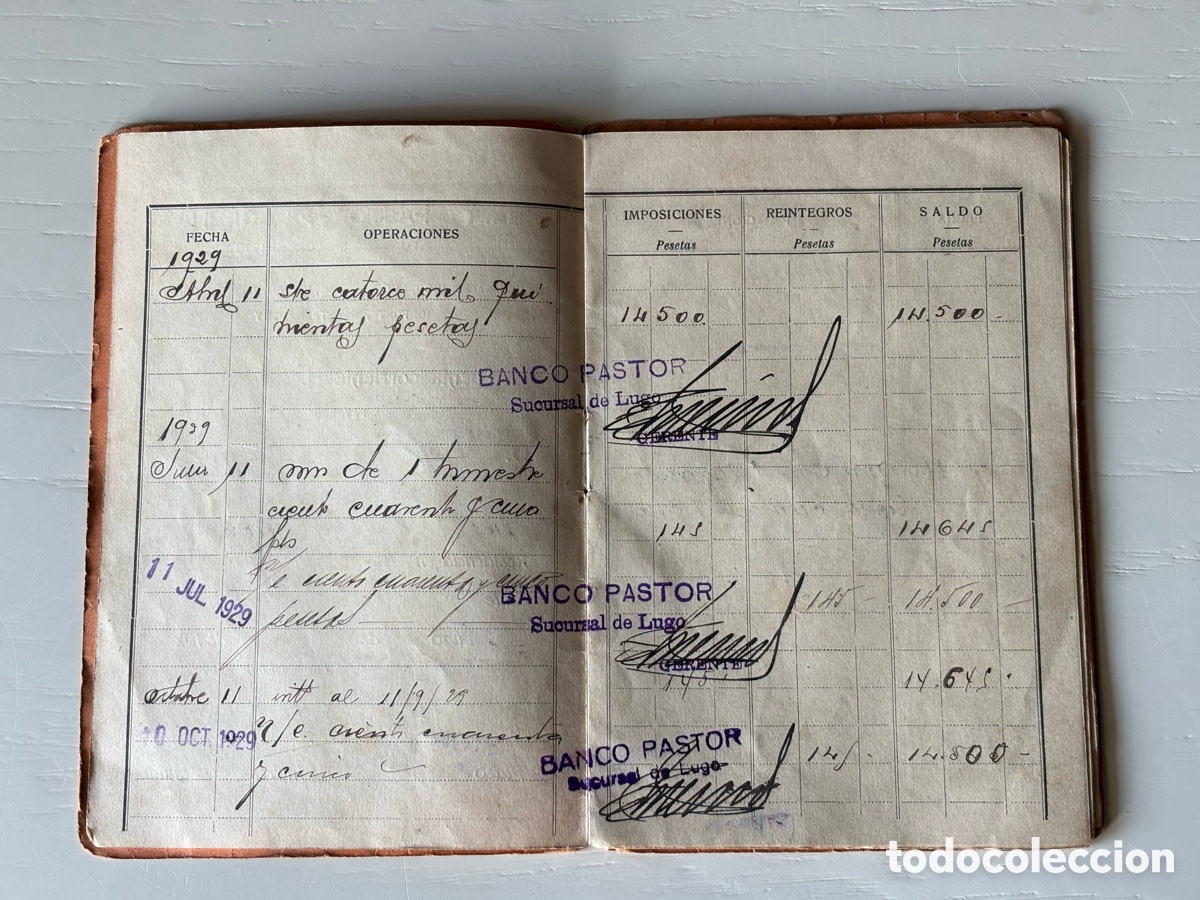 FECHA OPERACIONES IMPOSICIONES REINTEGROS SALDO
Pesetas Pesetas Pesetas
1929
Abril 11 Ste catorce mil qui
nientas pesetas 14500 14.500 -
BANCO PASTOR
Sucursal de Lugo
GERENTE
1929
11 de 1 trimestre
ciento cuarenta y cinco
pts 145 14645
11 JUL 1929 ciento cuarenta y cinco 145 - 14.500 -
pesetas
BANCO PASTOR
Sucursal de Lugo
GERENTE
Octubre 11 intt al 11/9/29 145. 14.645.
10 OCT. 1929 R/e. ciento cuarenta 145 - 14.500 -
y cinco
BANCO PASTOR
Sucursal de Lugo
todocoleccion